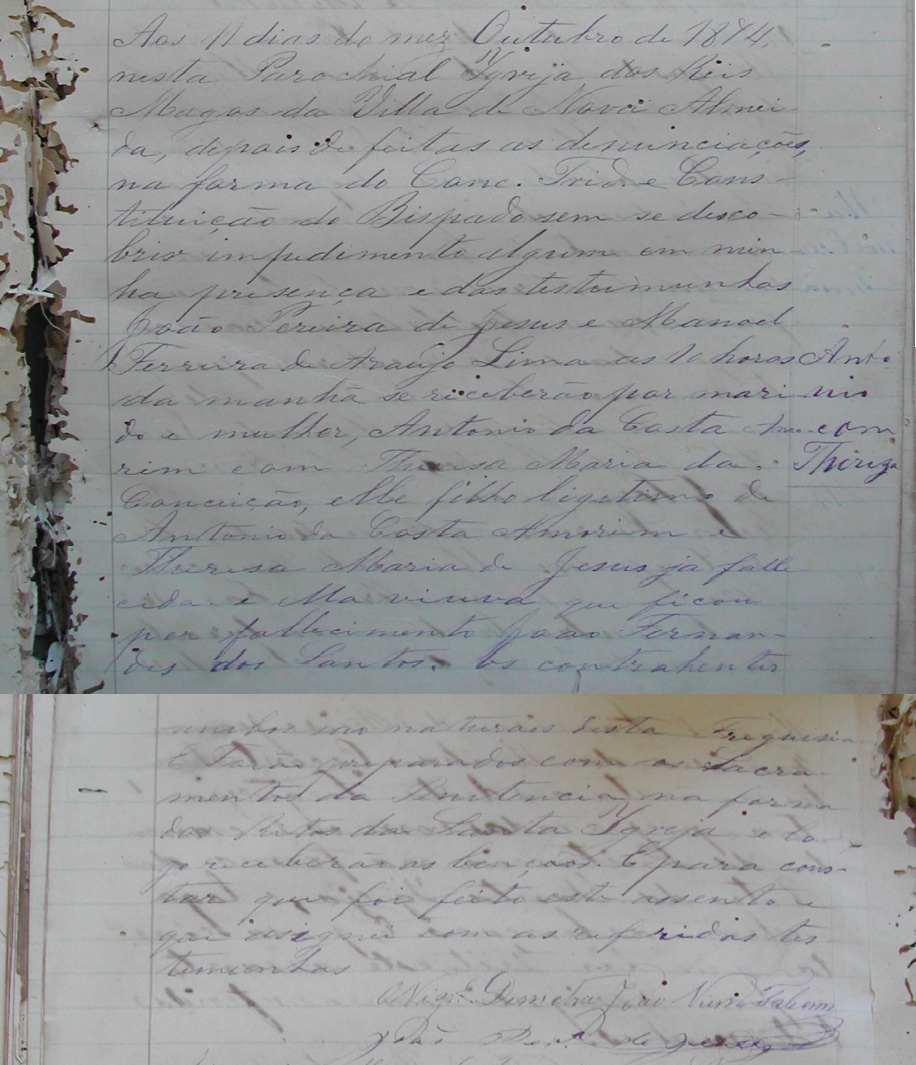 Aos 11 dias do mez Outubro de 1874,
nesta Parochial Igreja dos Reis
Magos da Villa de Nova Almei-
da, depois de feitas as denunciações,
na forma do Conc. Trid. e Cons-
tituição do Bispado sem se desco-
brir impedimento algum em min
ha presença e das testeimunhas
João Pereira de Jesus e Manoel
Ferreira de Araujo Lima as 10 horas
da manhã se receberão por mari
do e mulher, Antonio da Costa Amo
rim com Theresa Maria da
Conceição, elle filho ligitimo de
Antonio da Costa Amorim e
Theresa Maria de Jesus já falle
cida. e Ella viuva que ficou
por fallecimento João Fernan-
des dos Santos. Os contrahentes
Anto
nio
com
Thereza
ambos são naturais desta Freguesia
E forão preparados com os Sacra
mentos da Penitencia, na forma
dos Ritos da Santa Igreja e lo
go receberão as bençoos. E para cons-
tar que foi feito este assento e
que assignei com as referidas tes
temunhas
O Vigr.º Demetrio João Nunes
João Per.ª de Jesus